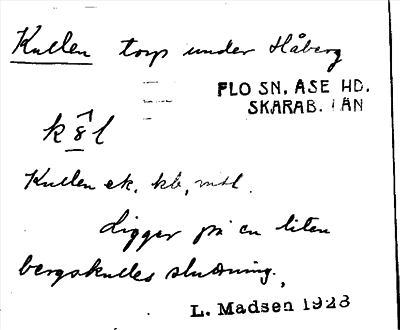 Kullen torp under Håberg
FLO SN, ÅSE HD.
SKARAB. LÄN
k 8 l
Kullen ek, kb, mtl.
Ligger på en liten
bergskulles sluttning.
L. Madsen 1928